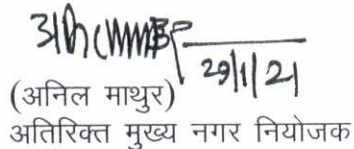 29/1/21
(अनिल माथुर)
अतिरिक्त मुख्य नगर नियोजक